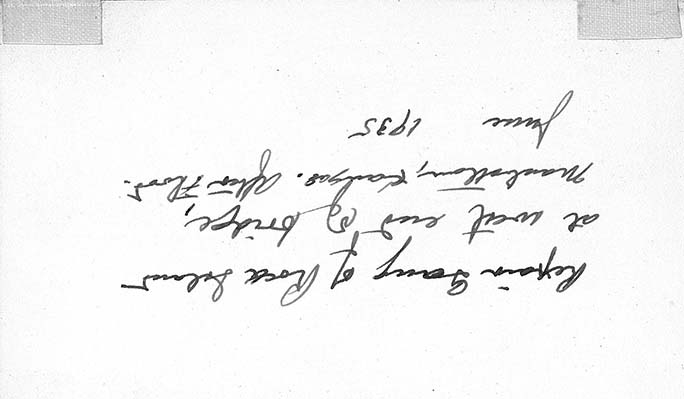 Repair Gang of Rock Island
at west end of bridge,
Manhattan, Kansas. After Flood.
June 1935